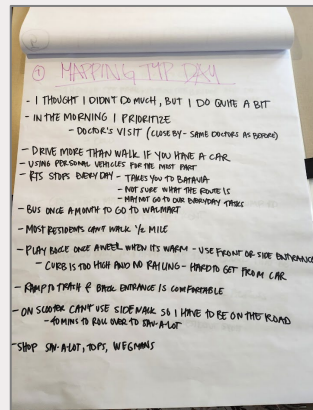 ① MAPPING TYP DAY
- I THOUGHT I DIDN'T DO MUCH, BUT I DO QUITE A BIT
- IN THE MORNING I PRIORITIZE
- DOCTOR'S VISIT (CLOSE BY - SAME DOCTORS AS BEFORE)
- DRIVE MORE THAN WALK IF YOU HAVE A CAR
- USING PERSONAL VEHICLES FOR THE MOST PART
- RTS STOPS EVERY DAY - TAKES YOU TO BATAVIA
- NOT SURE WHAT THE ROUTE IS
- MAY NOT GO TO OUR EVERYDAY TASKS
- BUS ONCE A MONTH TO GO TO WALMART
- MOST RESIDENTS CAN'T WALK 1/2 MILE
- PLAY BOCCE ONCE A WEEK WHEN IT'S WARM - USE FRONT OR SIDE ENTRANCE
- CURB IS TOO HIGH AND NO RAILING - HARD TO GET FROM CAR
- RAMP TO TRASH & BACK ENTRANCE IS COMFORTABLE
- ON SCOOTER CAN'T USE SIDEWALK SO I HAVE TO BE ON THE ROAD
- 40 MINS TO ROLL OVER TO SAV-A-LOT
- SHOP SAV-A-LOT, TOPS, WEGMANS